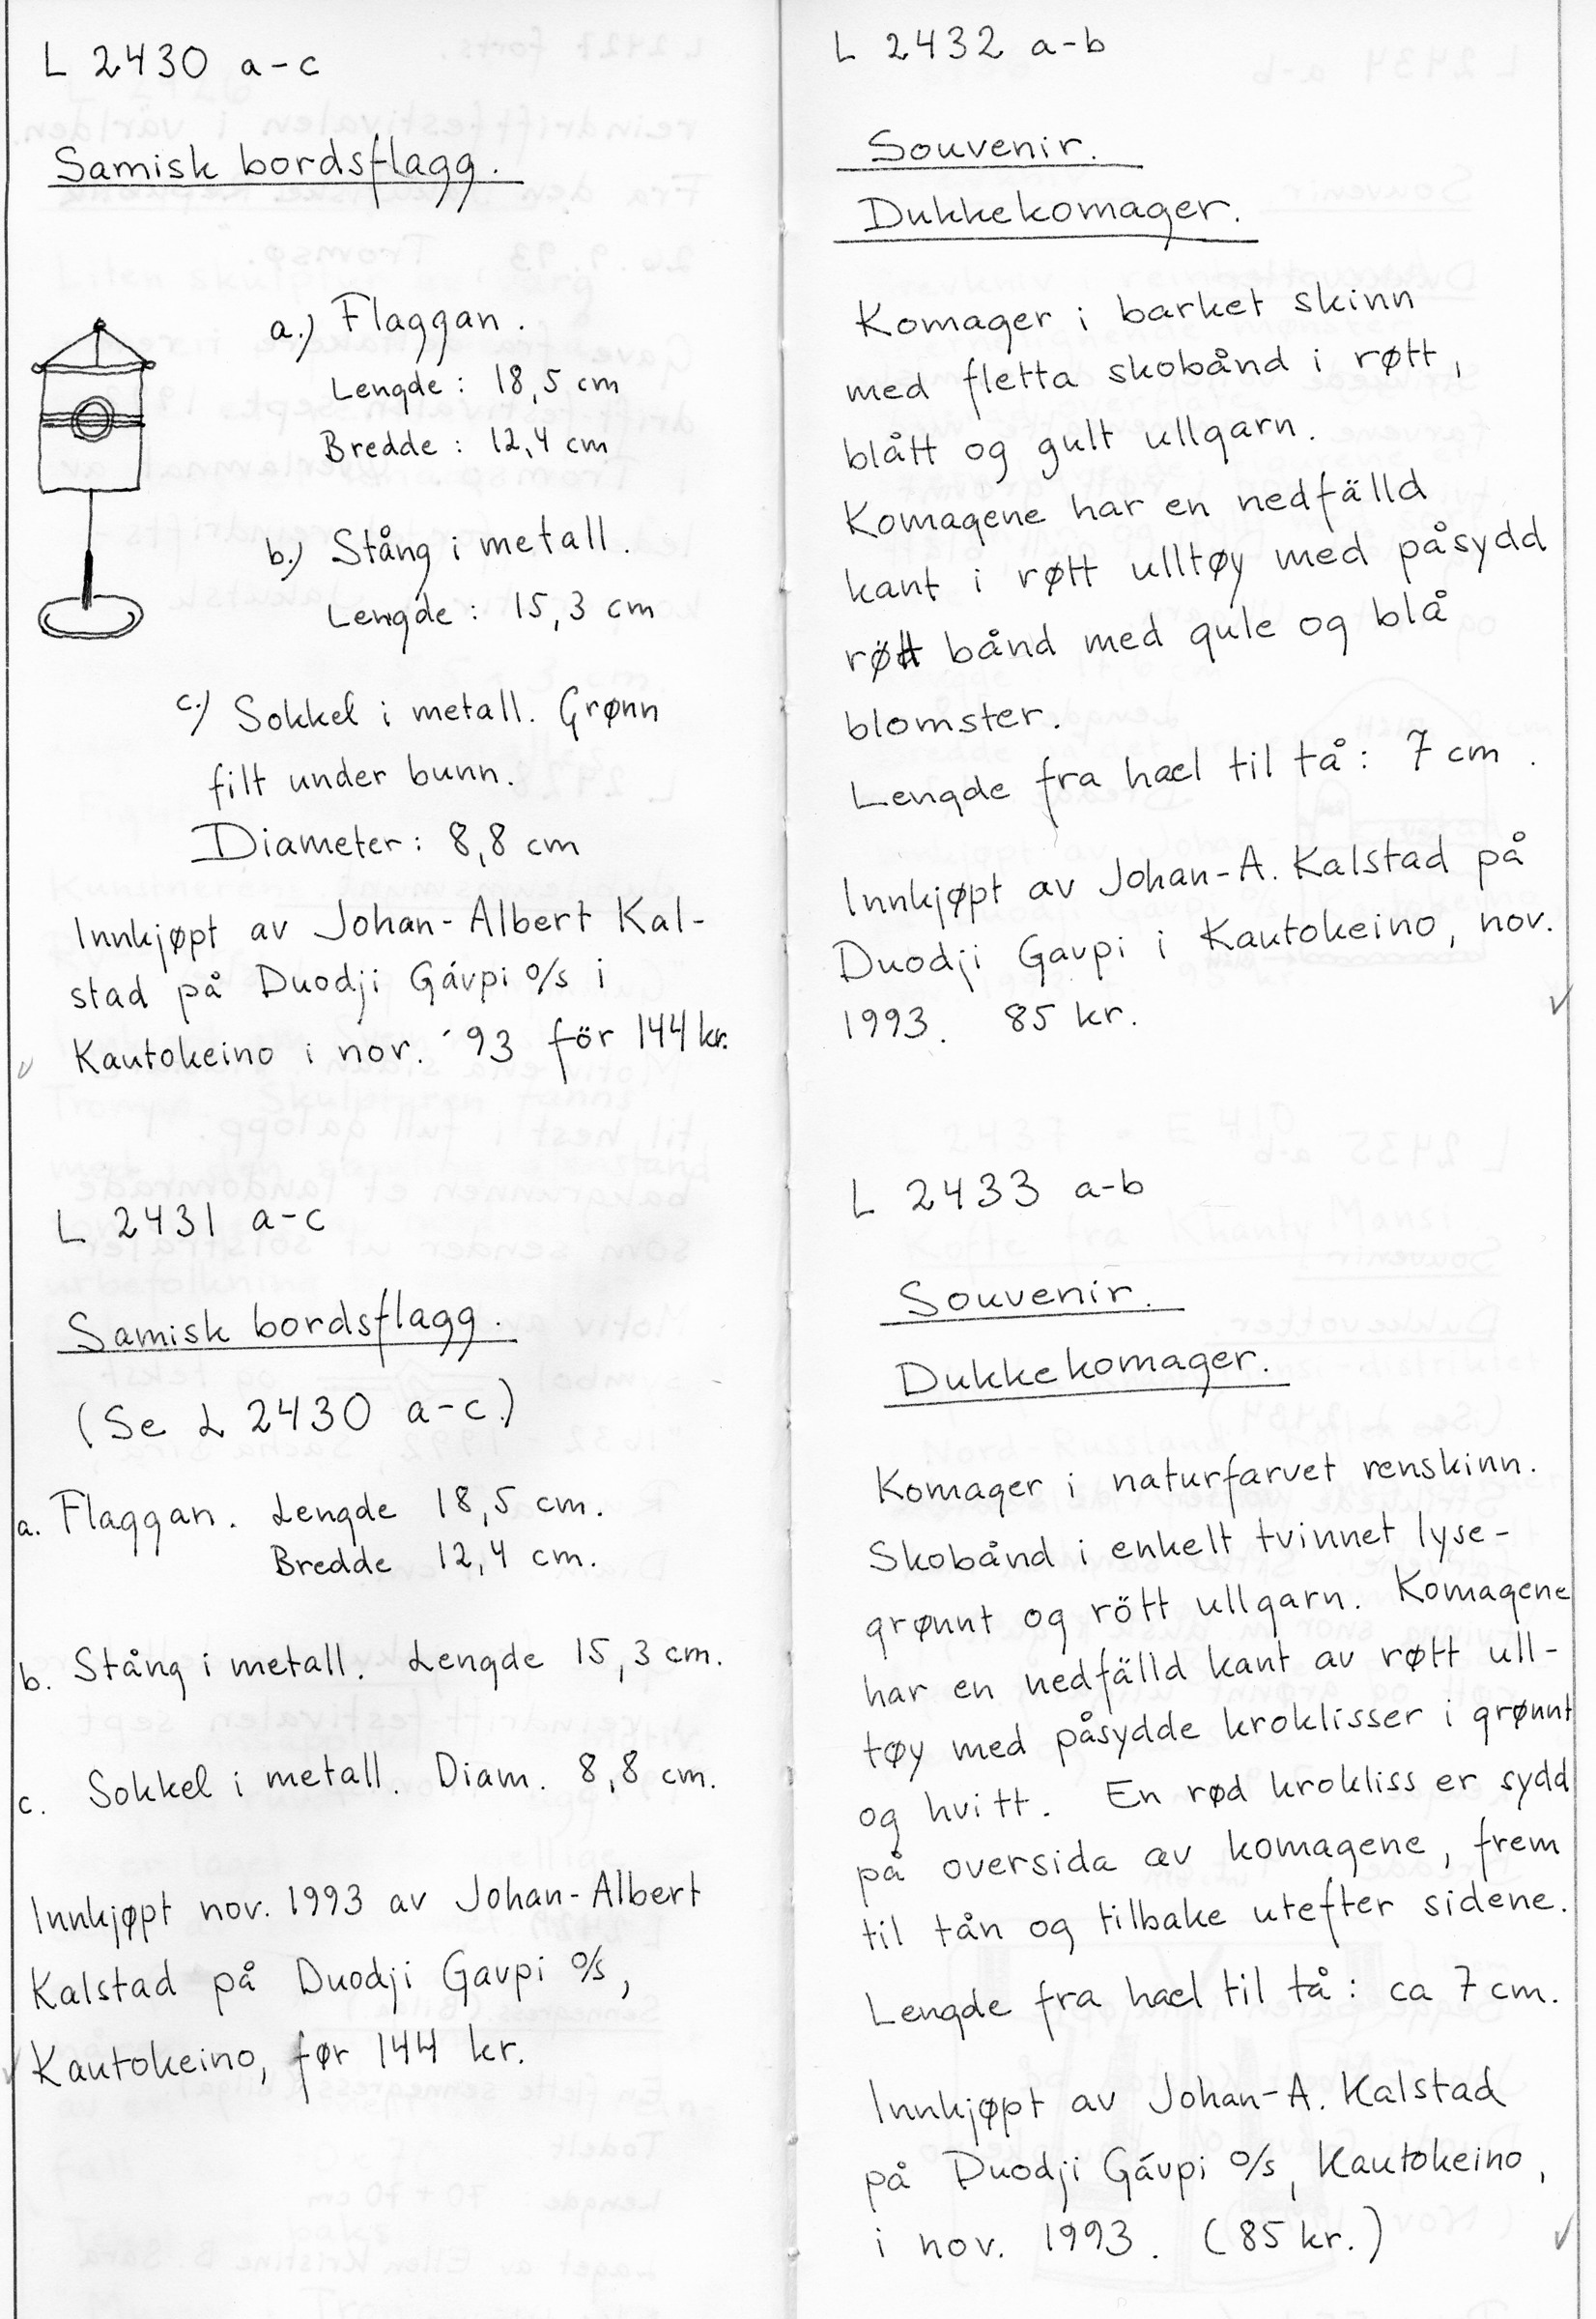 L 2430 a-c
Samisk bordsflagg.
a.) Flaggan.
Lengde: 18,5 cm
Bredde: 12,4 cm
b.) Stång i metall.
Lengde: 15,3 cm
c.) Sokkel i metall. Grønn
filt under bunn.
Diameter: 8,8 cm
Innkjøpt av Johan-Albert Kal-
stad på Duodji Gávpi o/s i
Kautokeino i nov. ´93 för 144 kr.
L 2431 a-c
Samisk bordsflagg.
(Se L 2430 a-c.)
a. Flaggan. Lengde 18,5 cm.
Bredde 12,4 cm.
b. Stång i metall. Lengde 15,3 cm.
c. Sokkel i metall. Diam. 8,8 cm.
Innkjøpt nov. 1993 av Johan-Albert
Kalstad på Duodji Gavpi o/s,
Kautokeino, før 144 kr.
L 2432 a-b
Souvenir.
Dukkekomager.
Komager i barket skinn
med fletta skobånd i røtt,
blått og gult ullgarn.
Komagene har en nedfälld
kant i røtt ulltøy med påsydd
røtt bånd med gule og blå
blomster.
Lengde fra hæl til tå: 7 cm.
Innkjøpt av Johan-A. Kalstad på
Duodji Gavpi i Kautokeino, nov.
1993. 85 kr.
L 2433 a-b
Souvenir.
Dukkekomager.
Komager i naturfarvet renskinn.
Skobånd i enkelt tvinnet lyse-
grønnt og rött ullgarn. Komagene
har en nedfälld kant av røtt ull-
tøy med påsydde kroklisser i grønnt
og hvitt. En rød krokliss er sydd
på oversida av komagene, frem
til tån og tilbake utefter sidene.
Lengde fra hæl til tå: ca 7 cm.
Innkjøpt av Johan-A. Kalstad
på Duodji Gávpi o/s, Kautokeino,
i nov. 1993. (85 kr.)